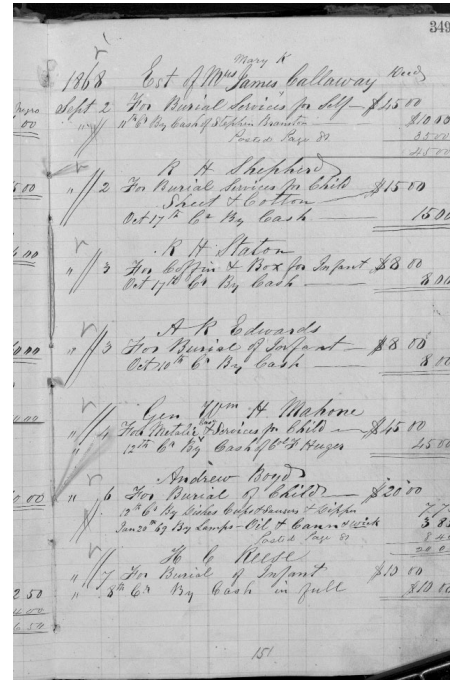 349
Mary K
1868 Est of Mrs James Callaway
Sept 2 For Burial Services for Self — $45 00
11th Cr By Cash of Stephen $10 00
Posted Page 80 35 00
45 00
R H Shepherd
" 2 For Burial Services for Child — $15 00
Sheet & Cotton
Oct 17th Cr By Cash — 15 00
R H Staton
" 3 For Coffin & Box for Infant $8 00
Oct 17th Cr By Cash — 8 00
A R Edwards
" 3 For Burial of Infant — $8 00
Oct 10th Cr By Cash — 8 00
Gen Wm H. Mahone
" 4 For Metalic Services for Child — $45 00
" 12th Cr By Cash of Col F Huger 45 00
Andrew Boyd
" 6 For Burial of Child — $20 00
By Dishes Cups & Dipper 7 7
Jan 20th 69 By Lamps — Oil & Cann & wick 3 85
Posted Page 80
20 0
H C Reese
" 7 For Burial of Infant $10 00
" 8th Cr By Cash in full $10 00
151
Negro
00
5.00
2 50
4 00
6 50